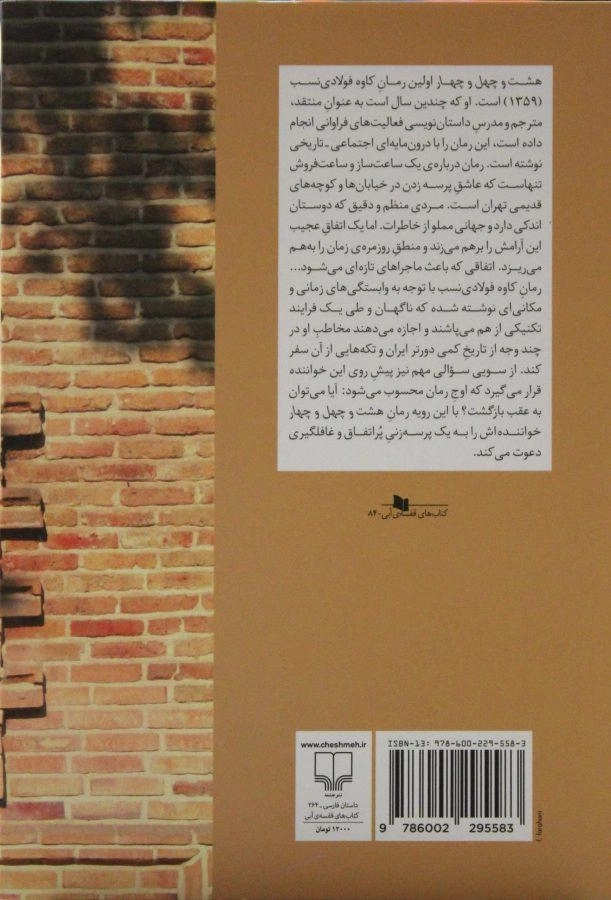 هشت و چهل و چهار اولین رمانِ کاوه فولادی‌نسب
(۱۳۵۹) است. او که چندین سال است به عنوانِ منتقد،
مترجم و مدرسِ داستان‌نویسی فعالیت‌های فراوانی انجام
داده است، این رمان را با درون‌مایه‌ای اجتماعی ـ تاریخی
نوشته است. رمان درباره‌ی یک ساعت‌ساز و ساعت‌فروش
تنهاست که عاشقِ پرسه زدن در خیابان‌ها و کوچه‌های
قدیمی تهران است. مردی منظم و دقیق که دوستان
اندکی دارد و جهانی مملو از خاطرات. اما یک اتفاقِ عجیب
این آرامش را برهم می‌زند و منطقِ روزمره‌ی زمان را به‌هم
می‌ریزد. اتفاقی که باعث ماجراهای تازه‌ای می‌شود...
رمانِ کاوه فولادی‌نسب با توجه به وابستگی‌های زمانی و
مکانی‌ای نوشته شده که ناگهان و طی یک فرایند
تکنیکی از هم می‌پاشند و اجازه می‌دهند مخاطبِ او در
چند وجه از تاریخِ کمی دورتر ایران و تکه‌هایی از آن سفر
کند. از سویی سؤالی مهم نیز پیشِ روی این خواننده
قرار می‌گیرد که اوجِ رمان محسوب می‌شود: آیا می‌توان
به عقب بازگشت؟ با این رویه رمانِ هشت و چهل و چهار
خواننده‌اش را به یک پرسه‌زنیِ پُراتفاق و غافلگیری
دعوت می‌کند.
کتاب‌های قفسه‌ی آبی-۸۴
www.cheshmeh.ir
نشرچشمه
داستان فارسی ـ ۲۶۴
کتاب‌های قفسه‌ی آبی
۱۲۰۰۰ تومان
ISBN-13: 978-600-229-558-3
9 786002 295583
f. farahani